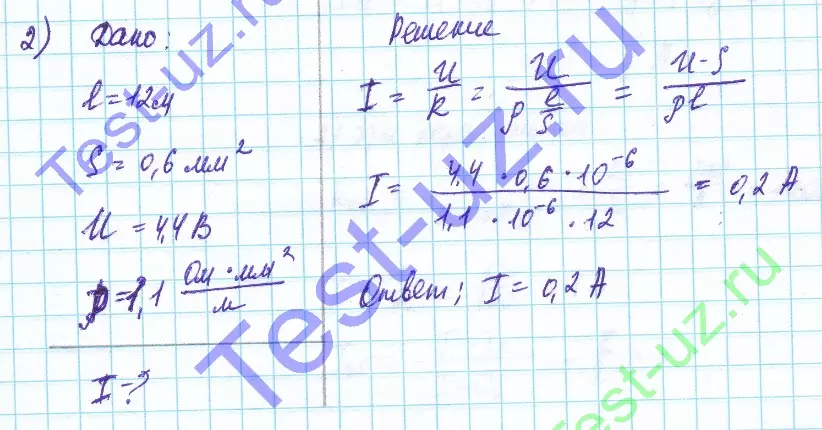 2) Дано:
l = 12м
S = 0,6 мм²
U = 4,4 В
ρ = 1,1 Ом·мм²/м
I - ?
Решение
I = U/R = U/(ρ l/S) = U·S/ρl
I = 4,4 · 0,6 · 10⁻⁶ / 1,1 · 10⁻⁶ · 12 = 0,2 А
Ответ; I = 0,2 А
Test-uz.ru
Test-uz.ru
Test-uz.ru